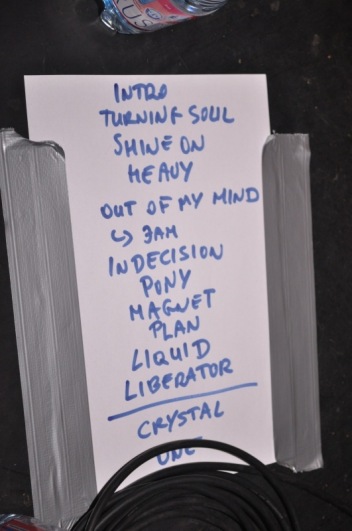 INTRO
TURNING SOUL
SHINE ON
HEAVY
OUT OF MY MIND
↳ 3AM
INDECISION
PONY
MAGNET
PLAN
LIQUID
LIBERATOR
CRYSTAL